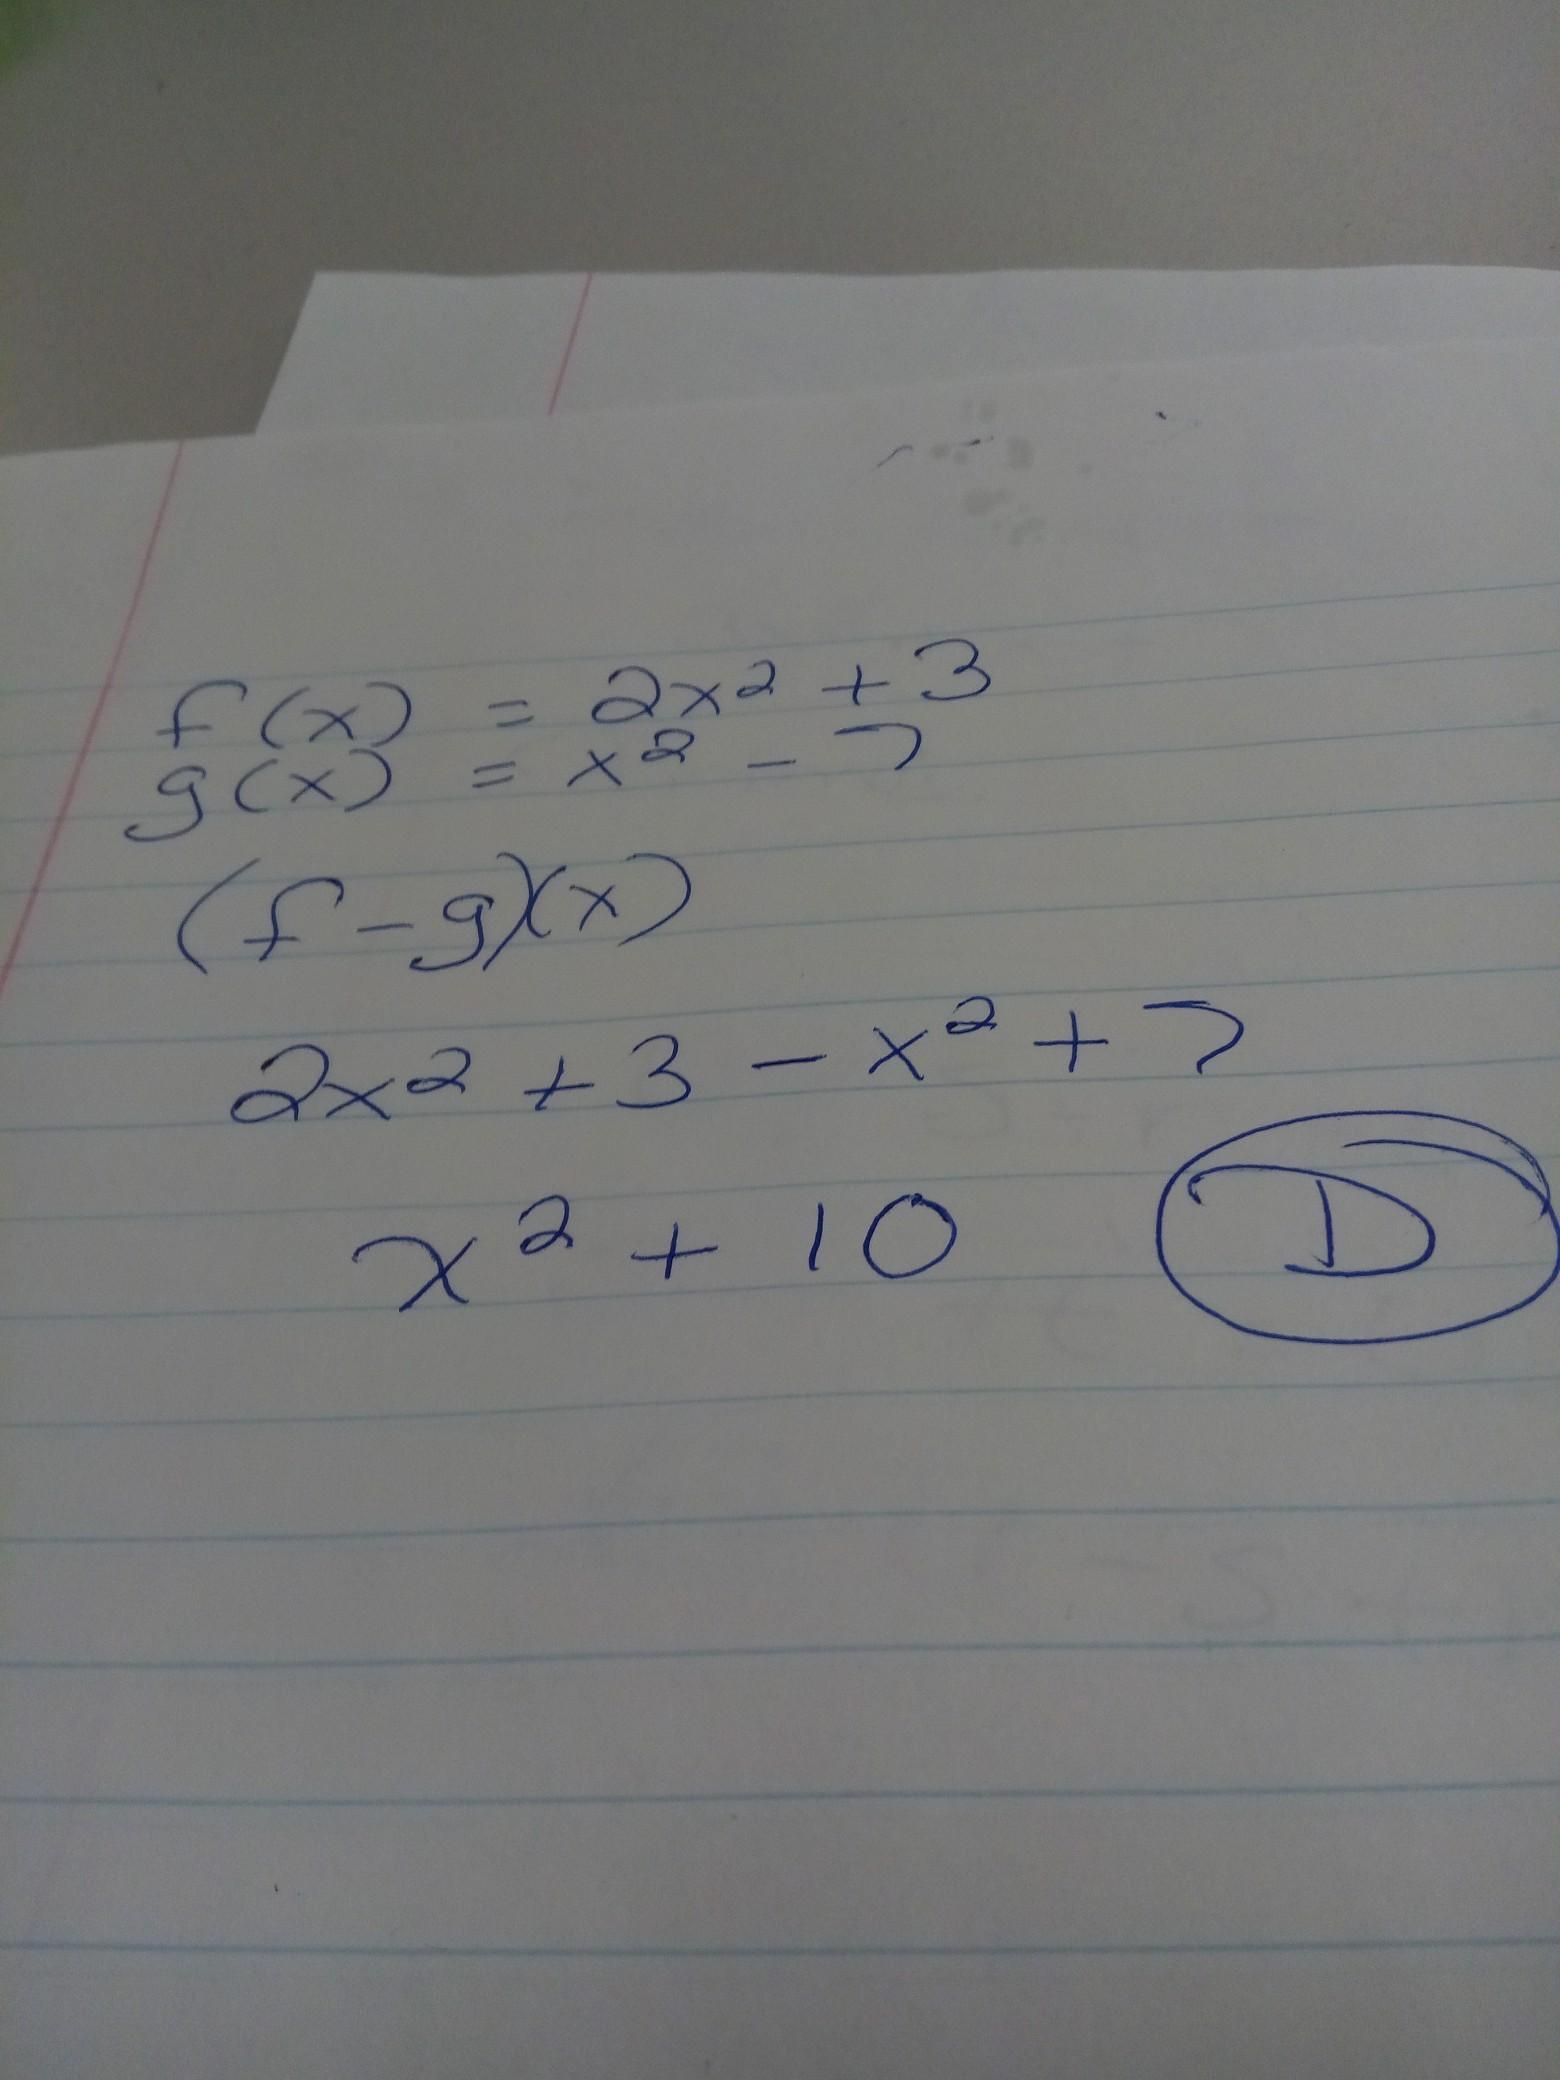 f(x) = 2x² + 3
g(x) = x² - 7
(f - g)(x)
2x² + 3 - x² + 7
x² + 10 D